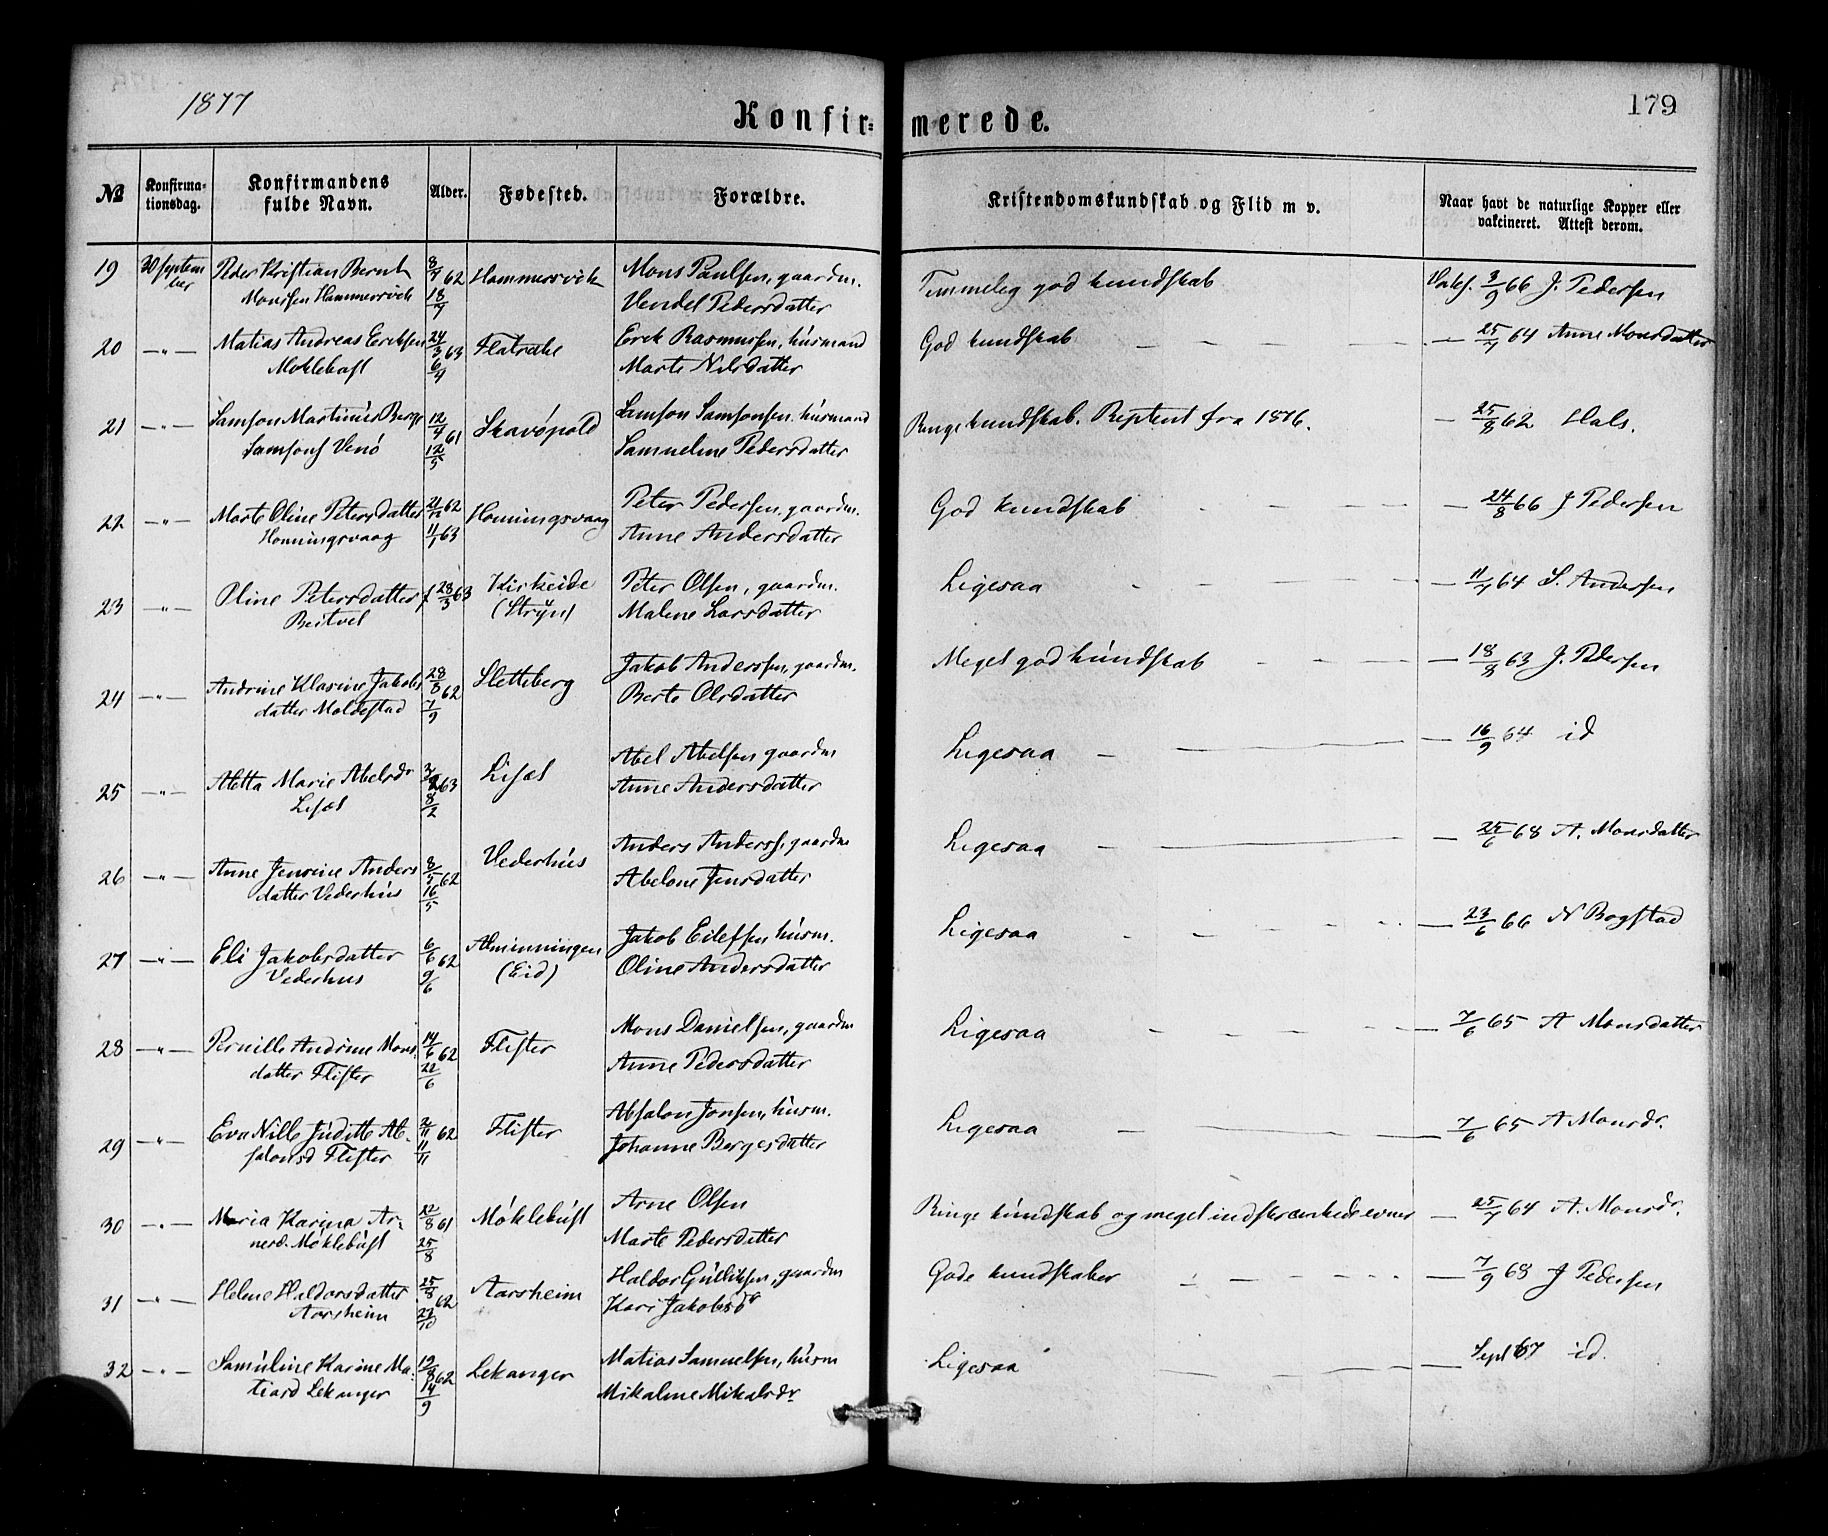 1877
179
Konfir= merede.
No Konfirma-tionsdag. Konfirmandens fulde Navn. Alder. Fødested. Forældre. Kristendomskundskab og Flid m v. Naar havt de naturlige Kopper eller vakcineret. Attest derom.
19 30 Septem Peder Kristian Bernt 8/7 62 Hammersvik Mons Paulsen, gaardm. Temmelig god kundskab Vaks. 3/9 66 J. Pedersen
ber Monssen Hammersvik 18/7 Vendel Pedersdatter
20 —"— Matias Andreas Eriksen 24/3 63 Flatrake Erik Rasmussen, husmand God kundskab — 25/7 64 Anne Monsdatter
Moklebust 6/4 Marte Nilsdatter
21 —"— Samson Martinus Berge 12/4 61 Skavøpold Samson Samsonsen husmand Ringe kundskab. Reptent fra 1876. — 25/8 62 Hals.
Samsons Venø 12/5 Samueline Pedersdatter
22 —"— Marte Oline Petersdatter 62 Honningsvaag Peter Pedersen, gaardm. God kundskab — 24/8 66 J Pedersen
Honningsvaag 11/1 63 Anne Andersdatter
23 —"— Oline Petersdatter f 28/3 63 Kirkeide Peter Olsen, gaardm. Ligesaa — 11/7 64 S. Andersen
Beitvel (Stryn) Malene Larsdatter
24 —"— Andrine Klasine Jakobs 28/8 62 Sletteberg Jakob Anderssen, gaardm. Meget god kundskab — 18/8 63 J. Pedersen
datter Moldestad 7/9 Berte Olsdatter
25 —"— Aletta Marie Abelsdr 63 Lisæt Abel Abelsen gaardm Ligesaa — 16/9 64 id
Lisæt 8/2 Anne Andersdatter
26 —"— Anne Jensine Anders 8/5 62 Vederhus Anders Anders, gaardm Ligesaa — 25/6 68 A. Monsdatter
datter Vederhus 16/5 Abelone Jensdatter
27 —"— Eli Jakobsdatter 6/6 62 Alminningen Jakob Eilefsen husm. Ligesaa — 23/6 66 N Bogstad
Vederhus 9/6 (Eid) Oline Andersdatter
28 —"— Pernille Andrine Mons 14/6 62 Flister Mons Danielsen, gaardm Ligesaa — 7/6 65 A Monsdatter
datter Flister 22/6 Anne Pedersdatter
29 —"— Eva Nille Juditte Ab- 2/11 62 Flister Absalon Jonsen, husm. Ligesaa — 7/6 65 A Monsdr.
salonsd Flister 11/11 Johanne Bergesdatter
30 —"— Maria Karina Ar- 22/8 61 Møklebust Arne Olsen Ringe kundskab og meget indskrænkede evner — 25/7 64 A. Monsdr.
nesd. Møklebust 25/8 Marte Pedersdatter
31 —"— Helene Haldorsdatter 25/8 62 Aarsheim Haldor Gulliksen, gaardm Gode kundskaber — 7/9 68 J Pedersen
Aarsheim /10 Kari Jakobsdr
32 —"— Samuline Karine Ma- 19/8 62 Lekanger Matias Samuelsen, husm Ligesaa — Sept 67 id.
tiasd Lekanger 14/9 Mikaline Mikalsdr